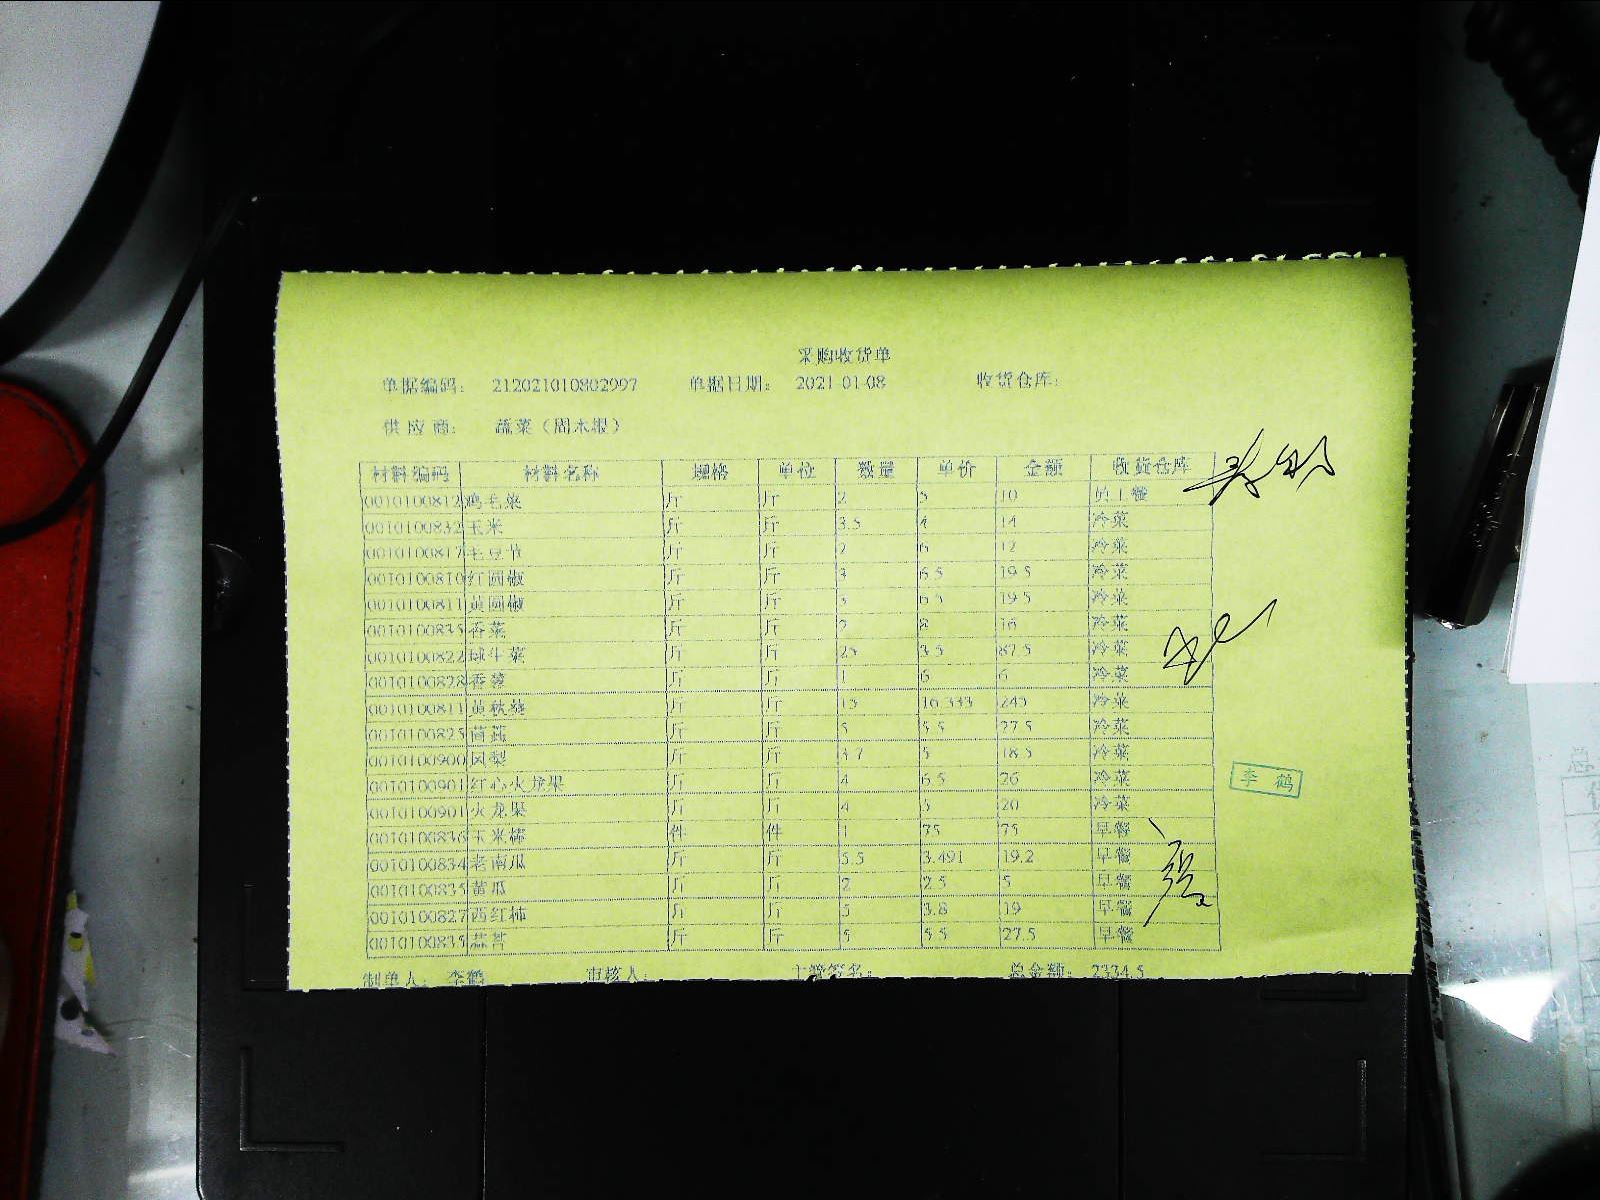 采购收货单
单据编码: 212021010802997 单据日期: 2021-01-08 收货仓库:
供应商: 蔬菜（周木
材料编码 材料名称 规格 单位 数量 单价 金额 收货仓库
0010100812 鸡毛菜 斤 斤 2 5 10 员工餐
0010100832 玉米 斤 斤 3.5 4 14 冷菜
0010100817 毛豆节 斤 斤 2 6 12 冷菜
0010100810 红圆椒 斤 斤 3 6.5 19.5 冷菜
0010100811 黄圆椒 斤 斤 3 6.5 19.5 冷菜
0010100835 香菜 斤 斤 2 8 16 冷菜
0010100822 球生菜 斤 斤 25 3.5 87.5 冷菜
0010100828 香 斤 斤 1 6 6 冷菜
0010100811 黄秋葵 斤 斤 15 16.333 245 冷菜
0010100825 茼蒿 斤 斤 5 5.5 27.5 冷菜
0010100900 凤梨 斤 斤 3.7 5 18.5 冷菜
0010100901 红心火龙果 斤 斤 4 6.5 26 冷菜
0010100901 火龙果 斤 斤 4 5 20 冷菜
0010100836 玉米棒 件 件 1 75 75 早餐
0010100834 老南瓜 斤 斤 5.5 3.491 19.2 早餐
0010100835 黄瓜 斤 斤 2 2.5 5 早餐
0010100827 西红柿 斤 斤 5 3.8 19 早餐
0010100835 蒜苔 斤 斤 5 5.5 27.5 早餐
李鹤
制单人: 李鹤 审核人: 主管签名: 总金额: 2334.5